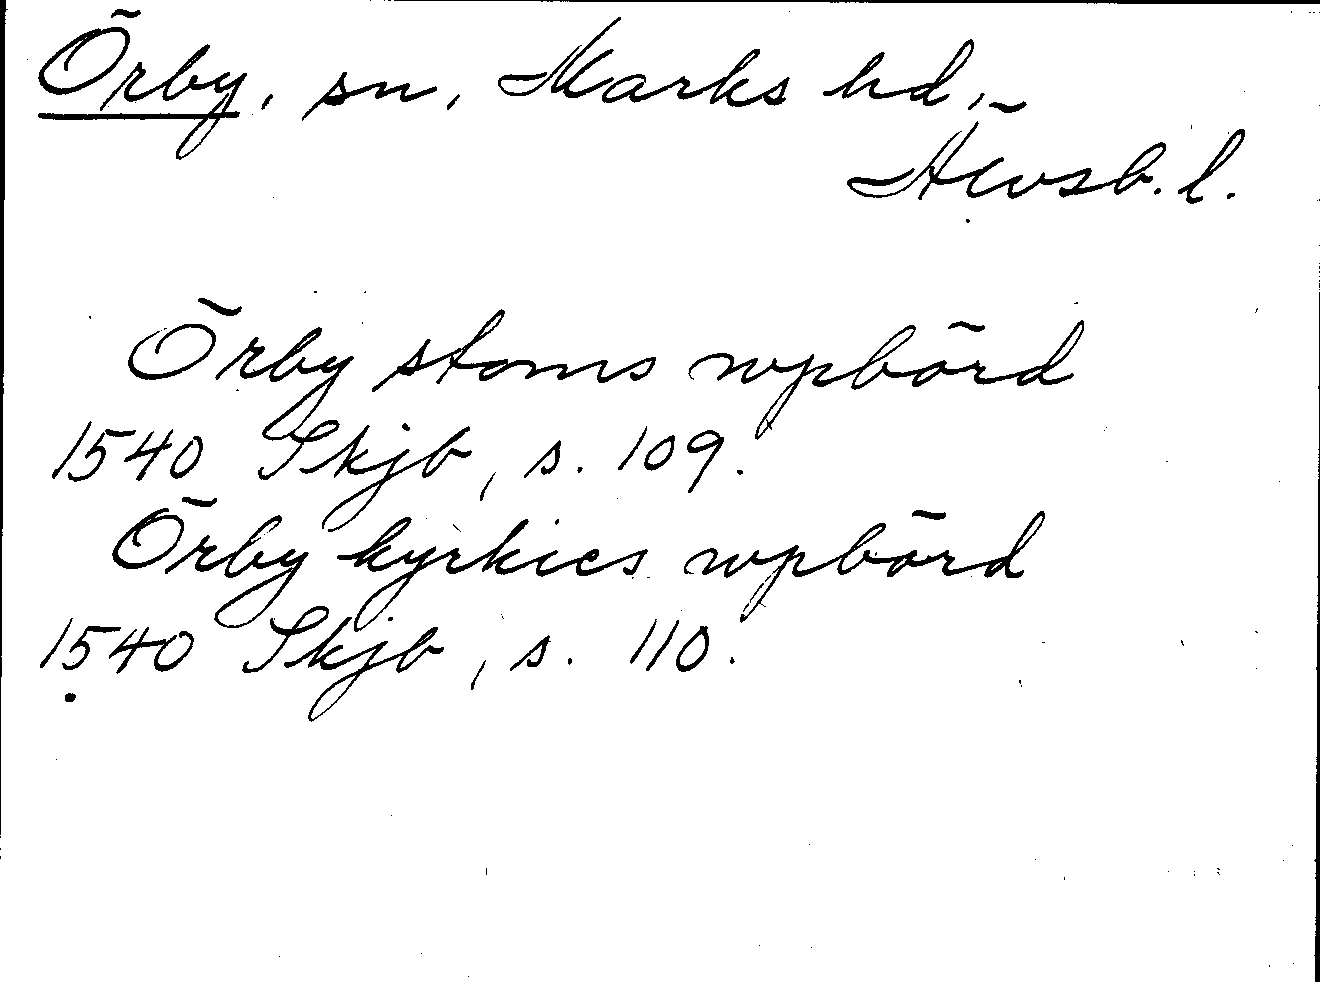 Örby, sn, Marks hd,
Älvsb. l.
Örby stoms wpbörd
1540 Skjb, s. 109.
Örby kyrkies wpbörd
1540 Skjb, s. 110.